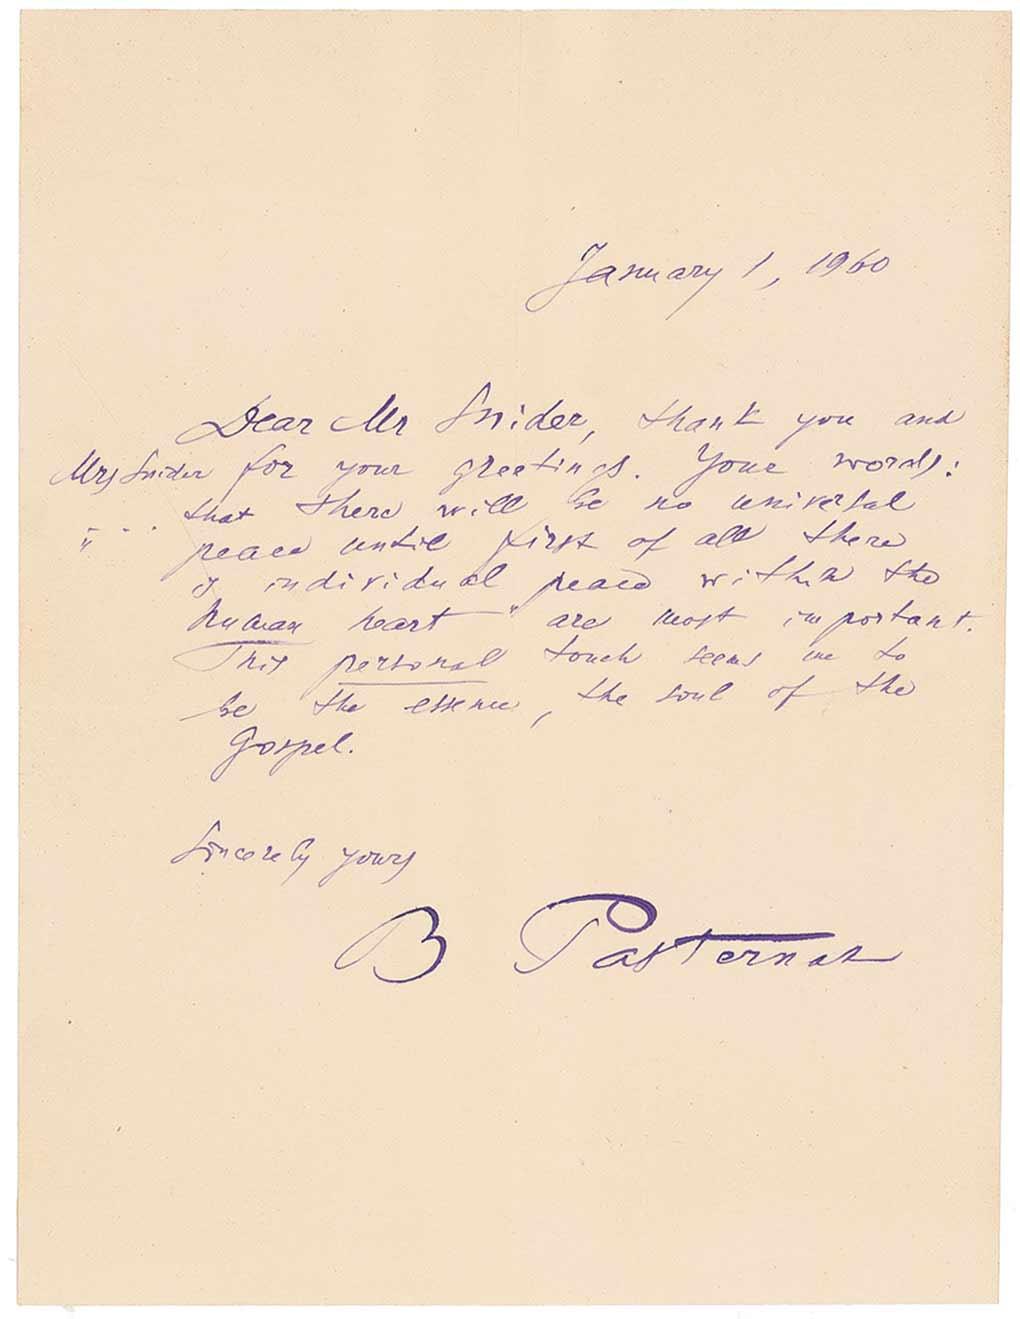 January 1, 1960
Dear Mr Snider, thank you and
Mrs Snider for your greetings. Your words:
„ - - - that there will be no universal
peace until first of all there
is individual peace within the
human heart" are most important.
This personal touch seems me to
be the essence, the soul of the
Gospel.
Sincerely yours
B Pasternak